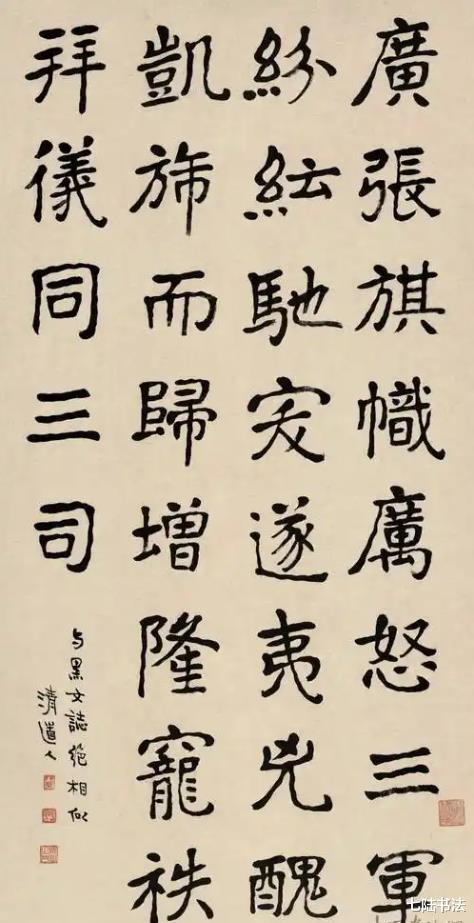 廣張旗幟厲怒三軍
紛紜馳突遂夷兇醜
凱旆而歸增隆寵秩
拜儀同三司
与黑女誌絕相似
清道人
七陆书法